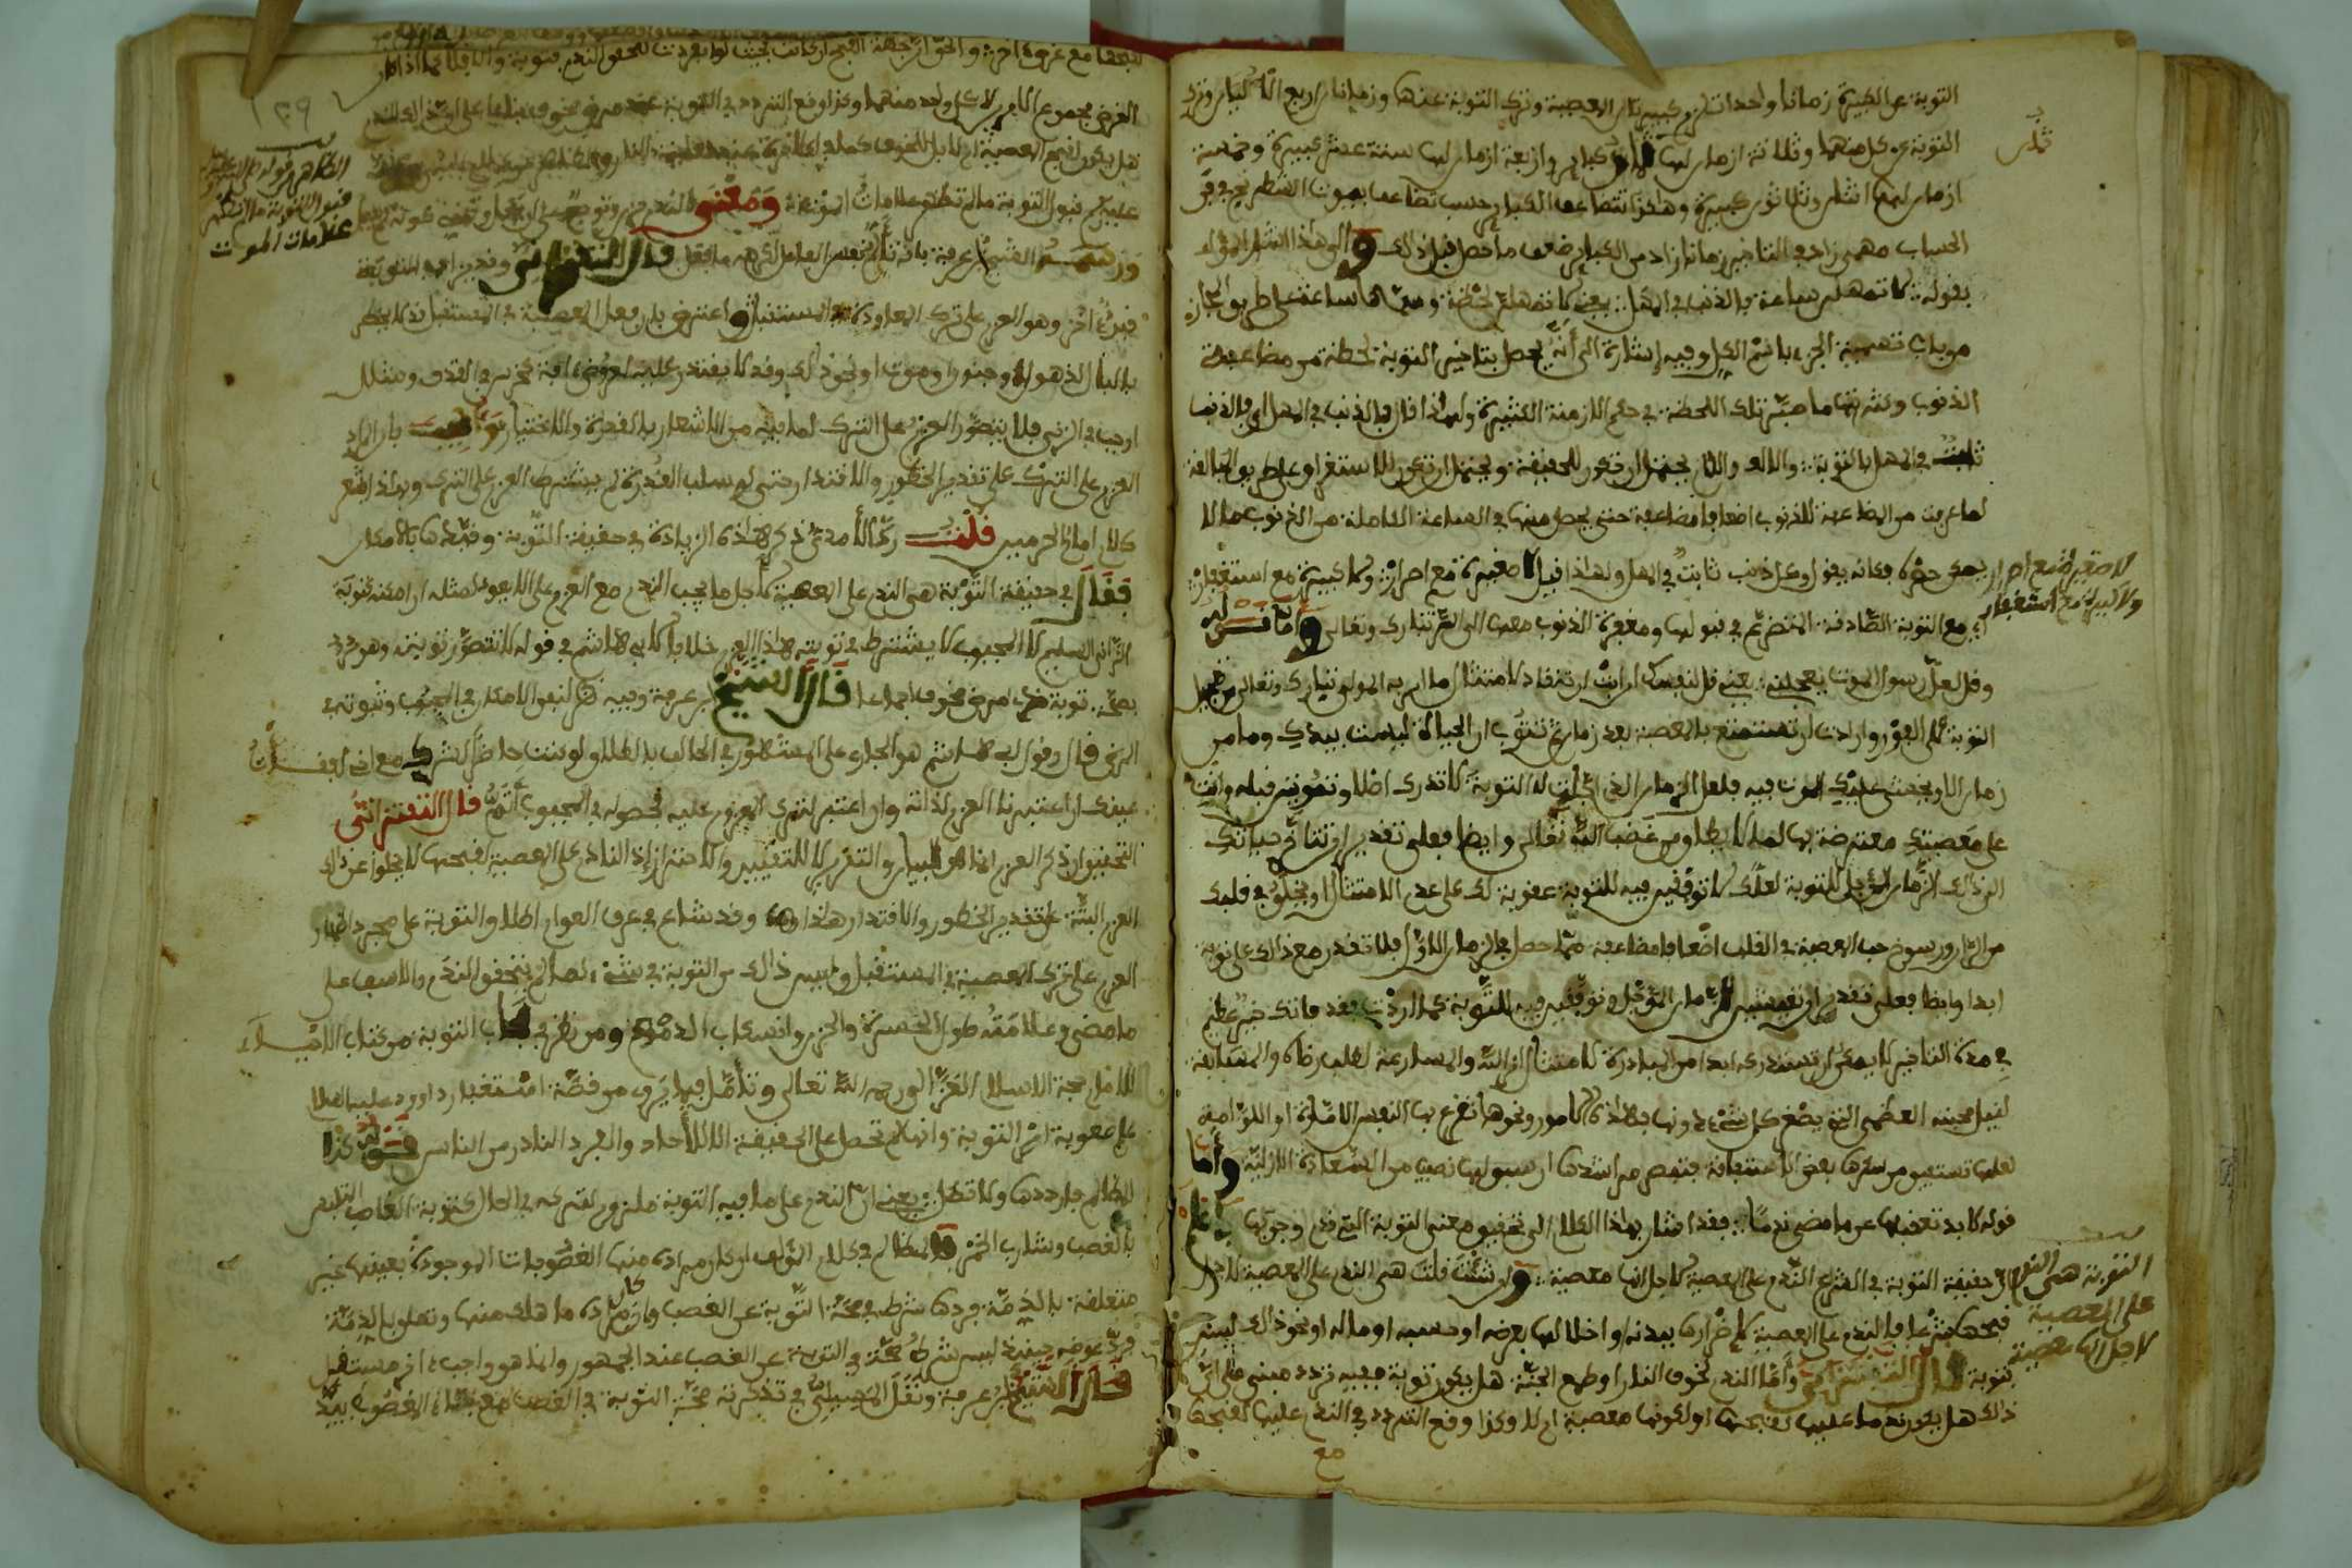 التوبة عن الكبيرة زمانا واحدا تلزم كبيرتان المعصية وترك التوبة عنها وزمانان اربع الاكبار وترك
التوبة عن كل منهما وثلاثة ازمان لها ثمان كبائر واربعة ازمان لها ستة عشر كبيرة وخمسة
ازمان لها اثنان وثلاثون كبيرة وهكذا تتضاعف الكبائر حسب تضاعف بيوت الشطرنج
الحساب مهمى زاد في التاخير زمانا زاد من الكبائر ضعف ما حصل قبل ذالك والى هذا اشار المؤلف
بقوله لا تمهلن ساعة فالذنب في المهل يعني لا تمهلن لحظة وسماها ساعة على طريق المجاز
من باب تسمية الجزء باسم الكل وفيه إشارة الى أنه يحصل بتاخير التوبة لحظة من مضاعفة
الذنوب وكثرتها ما صير تلك اللحظة في حكم الازمنة الكثيرة ولهذا قال فالذنب في المهل اي فالذنب
ثابت في المهل بالتوبة والالف واللام يحتمل ان تكون للحقيقة ويحتمل ان تكون للاستغراق على طريق المبالغة
لما عرفت من المضاعفة للذنوب اضعافا مضاعفة حتى يحصل منها في الساعة الكاملة من الذنوب ما لا
يمكن حصره فكانه يقول وكل ذنب ثابت في المهل ولهذا قيل لا صغيرة مع اصرار ولا كبيرة مع استغفار
اي مع التوبة الصادقة المتضرع في قبولها ومغفرة الذنوب معها الى الله تبارك وتعالى واما قوله
وقل لعل رسول الموت يعجلني يعني قل لنفسك ان ابت ان تنقاد لامتثال ما امر به المولى تبارك وتعالى من تعجيل
التوبة على الفور وارادت ان تستمتع بالمعصية بعد زمان ثم تتوب ان الحياة ليست بيدك وما من
زمان الا ويخشى عليك الموت فيه فلعل الزمان الذي اجلت له التوبة لا تدركه اصلا وتموتين قبله وانت
على معصيتك معترضة بها لما لا يطاق من غضب الله تعالى وايضا فعلى تقدير ان تتأخر حياتك
الى ذالك الزمان المؤجل للتوبة لعلك لا توفقين فيه للتوبة عقوبة لك على عدم الامتثال او يخلق في قلبك
من الران ورسوخ حب المعصية في القلب اضعافا مضاعفة مما حصل في الزمان الاول فلا تقدر مع ذالك على توبة
ابدا وايضا فعلى تقدير ان تعيشين للزمان المؤجل وتوفقين فيه للتوبة كما اردت فقد فاتك خير عظيم
في مدة التاخير لا يمكن ان تستدركه ابدا من المبادرة لامتثال امر الله والمسارعة لطلب رضاه والمسابقة
لنيل محبته العظمى التي يصغر كل شيء دونها فبهذه الامور ونحوها تقرع بها النفس الامارة او اللوامة
لعلها تستفيق من سكرها بعض الاستفاقة فتنهض من اشدها ان سبق لها نصيب من السعادة الازلية وأما
قوله لا بد تعقبها عن ما مضى ندما فقد اشار بهذا الكلام الى تحقيق معنى التوبة التي قدم وجوبها فاعلم
ان حقيقة التوبة في الشرع الندم على المعصية لاجل انها معصية وان شئت قلت هي الندم على المعصية لاجل
قبحها شرعا فالندم على المعصية لاضرارها ببدنه او اخلالها بعرضه او حسبه او ماله او نحو ذالك ليس
بتوبة قال التفتزاني وأما الندم لخوف النار او طمع الجنة هل يكون توبة ففيه تردد مبني على ان
ذالك هل يكون ندما عليها لقبحها او لكونها معصية ام لا وكذا وقع التردد في الندم عليها لقبحها
مع
لا صغيرة مع اصرار
ولا كبيرة مع استغفار
التوبة هي الندم
على المعصية
لاجل انها معصية
لقبحها مع غرض اخر والحق ان جهة القبح ان كانت بحيث لو انفردت لتحقق الندم فتوبة والا فلا كما اذا كان
الغرض مجموع الامرين لا كل واحد منهما وكذا وقع التردد في التوبة عند مرض مخوف بناء على ان ذالك الندم
هل يكون لقبح المعصية ام لا بل للخوف
قبول التوبة ما لم تظهر علامات الموت ومعنى الندم
ورسمه الشيخ ابن عرفة بانه تألم نفس الفاعل لكرهه ما فعل قال التفتزاني وقد يزاد في التوبة
قيد اخر وهو العزم على ترك المعاودة في المستقبل واعترض بان فعل المعصية في المستقبل قد لا يخطر
بالبال لذهول او جنون او موت او نحو ذالك وقد لا يقتدر عليه لعروض افة كخرس في القذف وشلل
او جب في الزنى فلا يتصور العزم على الترك لما فيه من الاشعار بالقدرة والاختيار وأجيب بان المراد
العزم على الترك على تقدير الخطور والاقتدار حتى لو سلب القدرة لم يشترط العزم على الترك وبهذا اشعر
كلام امام الحرمين قلت ركن الأمدي ذكر هذه الزيادة في حقيقة التوبة وقيدها بالامكان
فقال في حقيقة التوبة هي الندم على المعصية لاجل ما يجب الندم مع العزم على الا يعود لمثله ان امكنه كتوبة
الزاني السليم لا المجبوب لا يشترط في توبته هذا العزم خلافا لابي هاشم في قوله لا تتصور توبته وهو مردود
بصحة توبة من مرض مخوف اجماعا قال الشيخ ابن عرفة وفيه نظر لنفي الامكان في المجبوب وثبوته في
المرض قال وقول ابي هاشم هو الجاري على المشهور في الحالف بالطلاق لو شئت
عينك ان اعتبرنا العزم لذاته وان اعتبر لترك المعزوم عليه فحصوله في المجبوب أتم قال التفتزاني
التحقيق ان ذكر العزم انما هو للبيان والتقرير لا للتقييد والاحتراز اذ النادم على المعصية لقبحها لا يخلو عن ذالك
العزم البتة على تقدير الخطور والاقتدار هذا وقد شاع في عرف العوام اطلاق التوبة على مجرد اظهار
العزم على ترك المعصية في المستقبل وليس ذالك من التوبة في شيء ما لم يتحقق الندم والاسف على
ما مضى وعلامته طول الحسرة والحزن وانسكاب الدموع ومن نظر في كتاب التوبة من كتاب الاحياء
للامام حجة الاسلام الغزالي رحمه الله تعالى وتأمل فيما يروى من قصة استغفار داوود عليه السلام
على صعوبة امر التوبة وانها لا تحصل على الحقيقة الا للأحاد والفرد النادر من الناس قوله كذا
المظالم فارددها ولا تطل يعني ان الندم على ما فيه التوبة ملزوم لتركه في الحال كتوبة الغاصب المتلبس
بالغصب وشارب الخمر والمظالم في كلام المؤلف ان كان مراده منها المغصوبات الموجودة بعينها غير
متعلقة بالذمة فردها شرط في صحة التوبة عن الغصب وان كان مراده ما هلك منها وتعلق بالذمة
فرد عوضه حينئذ ليس شرط صحة في التوبة عن الغصب عند الجمهور وانما هو واجب اخر مستقل
قال الشيخ ابن عرفة ونقل المحسبي في تذكرته صحة التوبة في الغصب مع بقاء المغصوب بيد
١٣٩
قبول التوبة ما لم تظهر
علامات الموت